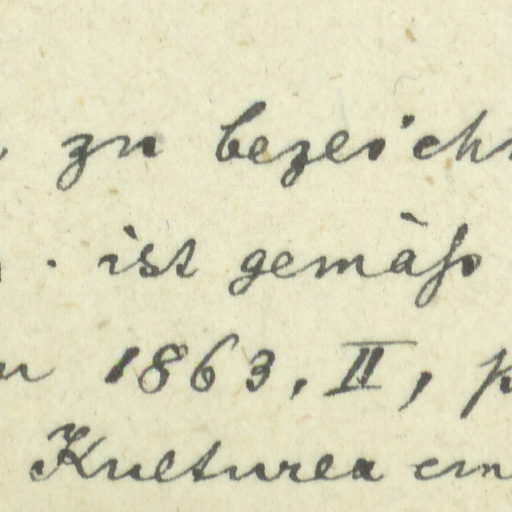 zu bezeichn
. ist gemäß
1863, II, p
Kulturen em